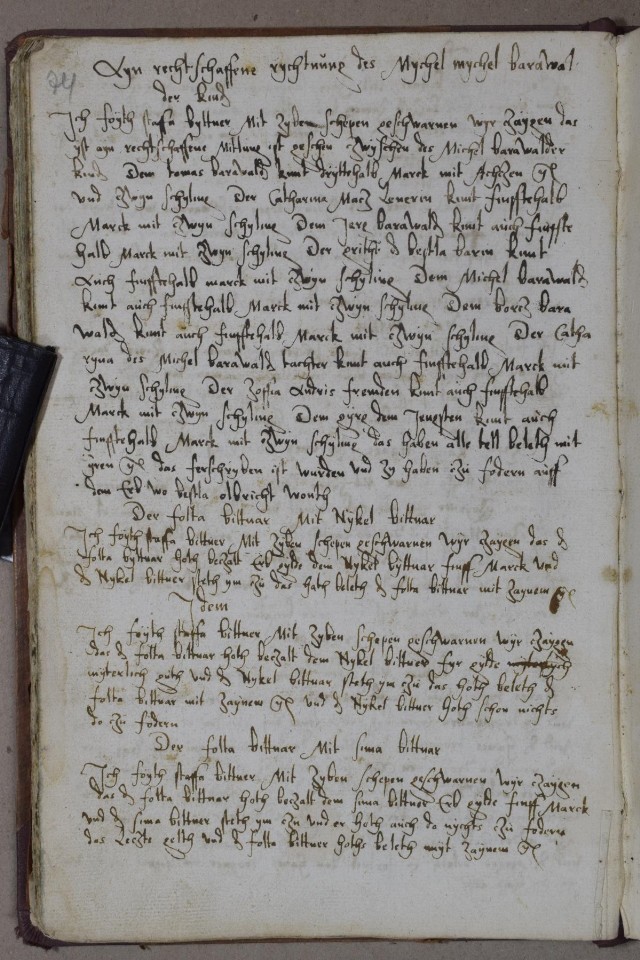 24
Ayn rechtschaffene rychtung des Mychel mychel barawal
der kind
Ich foyth staffa byttner Mit zyben schepen geschwarnen wyr zaygen das
yst ayn rechtschaffene Mittung ist geschen zwyschen des Michel barawalder
kind Dem tomas barawald kimt dryttehalb Marck mit Achzen gl
und zwyn schyling Der Catharina Macz kimt finfftehalb
Marck mit zwyn schyling Dem Jere barawald kimt auch finffte
halb Marck mit zwyn schyling Der d bestla barin kimt
Auch finfftehalb marck mit zwyn schyling Dem Michel barawald
kimt auch finfftehalb Marck mit czwyn schyling Dem borcz bara
wald kimt auch finfftehalb Marck mit czwyn schyling Der Catha
ryna des Michel barawald tachter kimt auch finfftehalb Marck mit
zwyn schyling Der zofia Andris fremden kimt auch finfftehalb
Marck mit zwyn schyling Dem dem Jengsten kimt auch
finfftehalb Marck mit zwyn schyling das haben alle tell beleth mit
yren gl das ferschryben ist wurden und zy haben czu fodern auff
dem Erb wo bestla olbricht wonth
Der folta bittnar Mit Nykel bittnar
Ich foyth staffa bittner Mit zyben schepen geschwarnen wyr zaygen das d
folta byttnar hoth beczalt Erb gylde dem Nykel byttnar finff Marck und
d Nykel bittner steth ym zu das hoth beleth d folta bittnar mit zaynem gl
Idem
Ich foyth staffa bittner Mit zyben schepen geschwarnen wyr zaygen
das d folta bittnar hoth beczalt dem Nykel bittner fyr gylde
myterlich guth und d Nykel bittnar steth ym czu das hoth beleth d
folta bittnar mit zaynem gl und d Nykel bittner hoth schon nichts
do zu fodern
Der folta bittnar Mit sima bittnar
Ich foyth staffa bittner Mit zyben schepen geschwarnen wyr zaygen
das d folta bittnar hoth beczalt dem sima bittner Erb gylde finff Marck
und d sima bittner steth ym zu und er hoth auch do nychts zu fodern
das Leczte gelth und d folta bittner hoths beleth myt zaynem gl